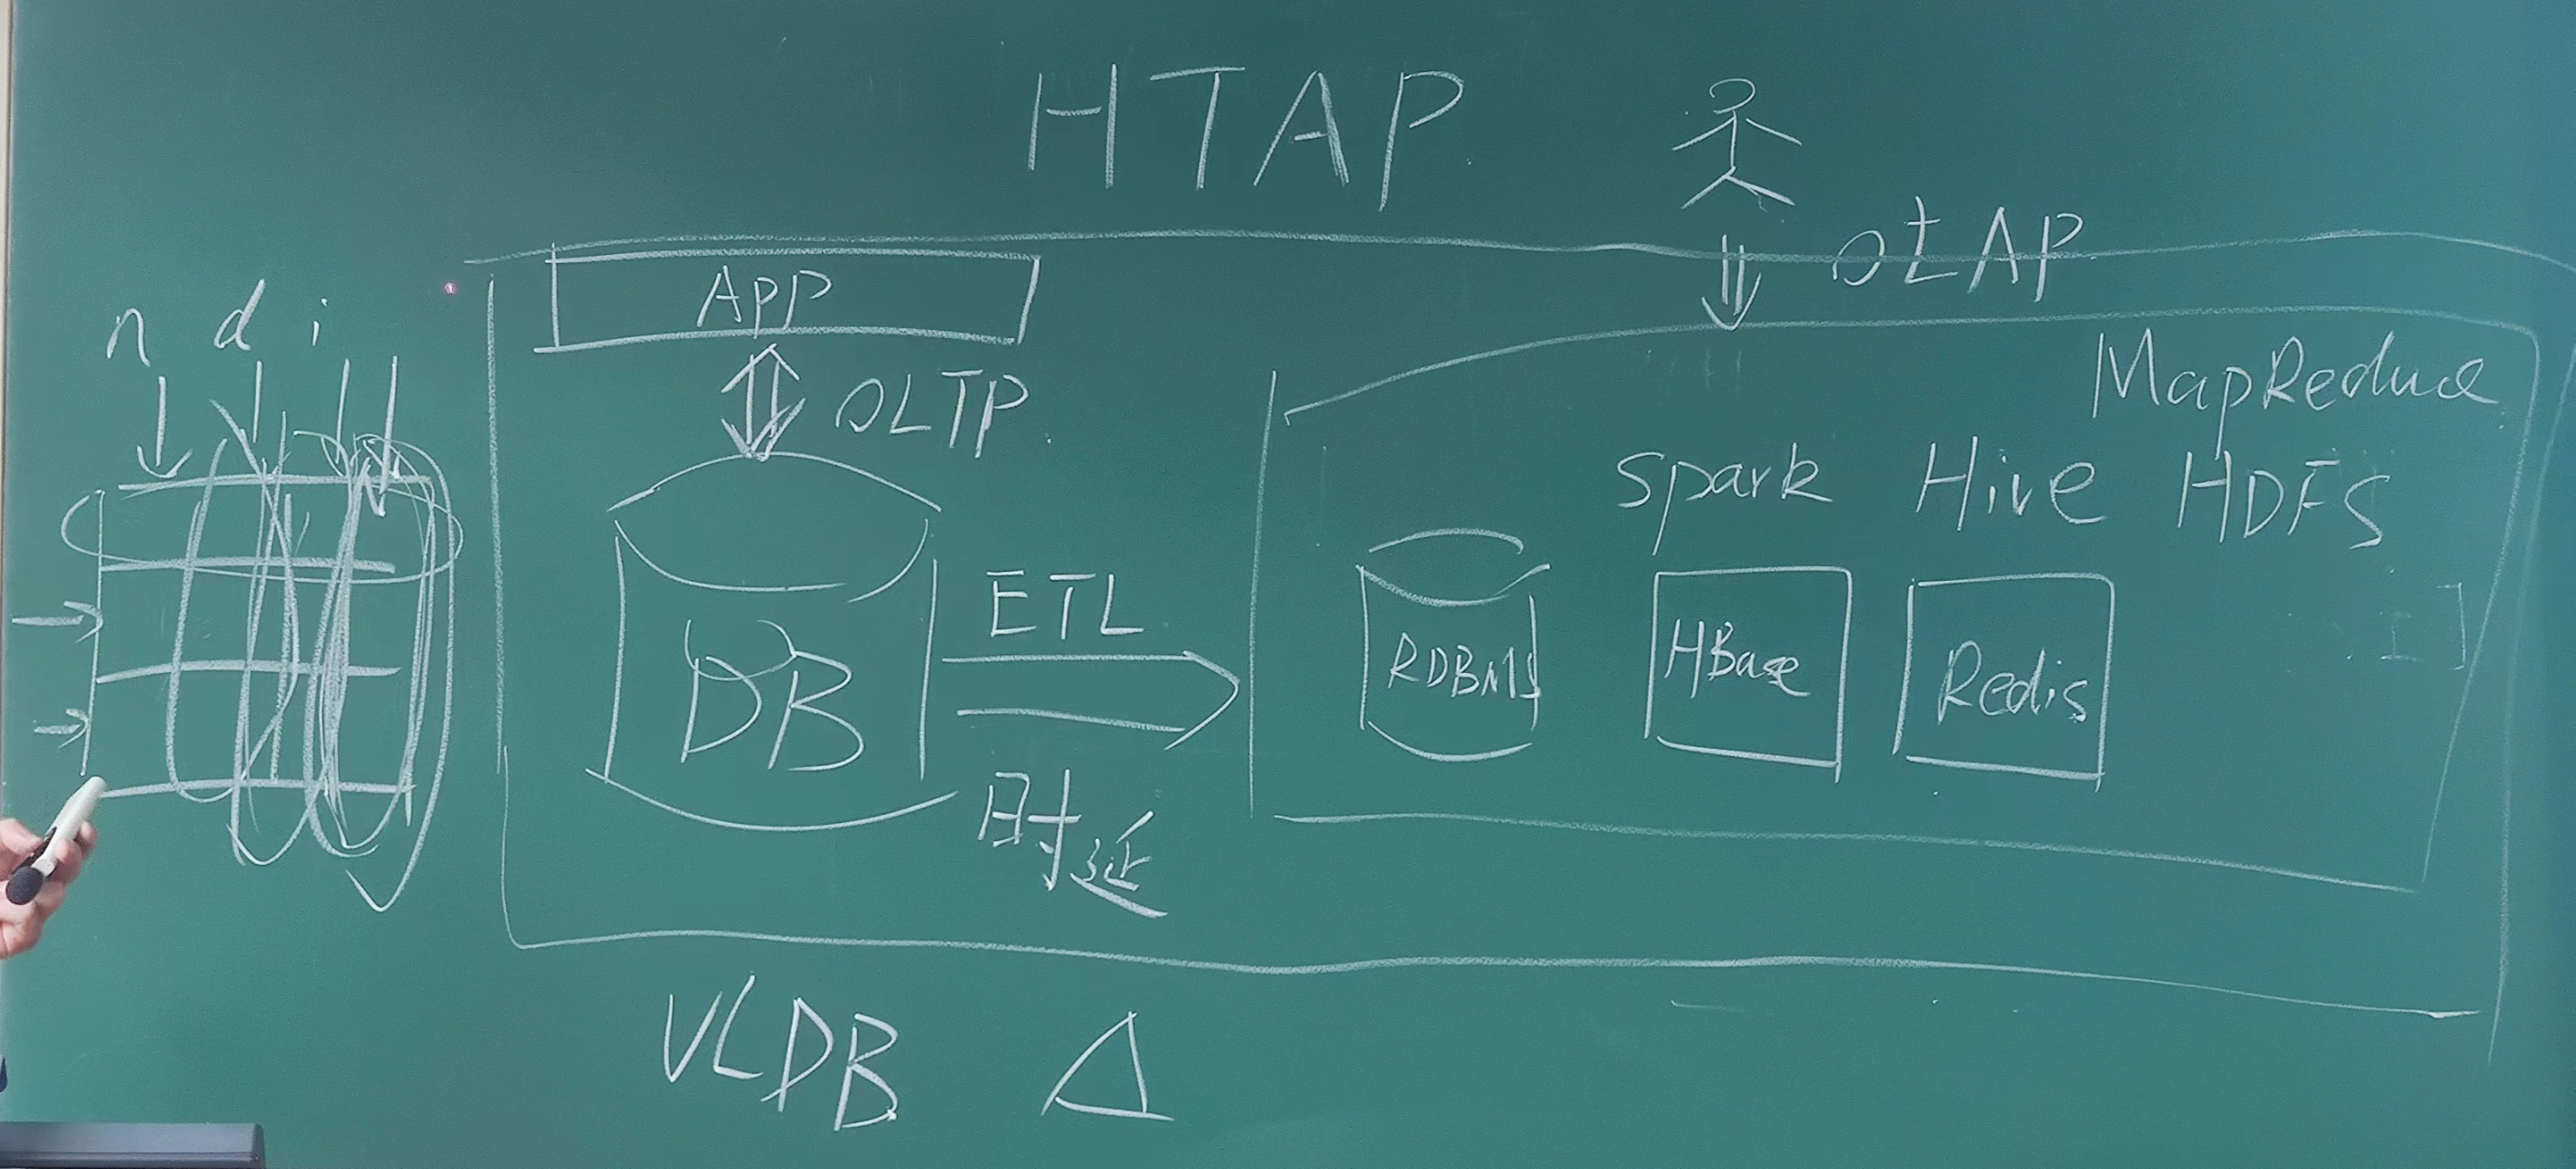 HTAP
OLAP
APP
n d i
OLTP
MapReduce
Spark Hive HDFS
ETL
DB
RDBMS
HBase
Redis
时延
VLDB △